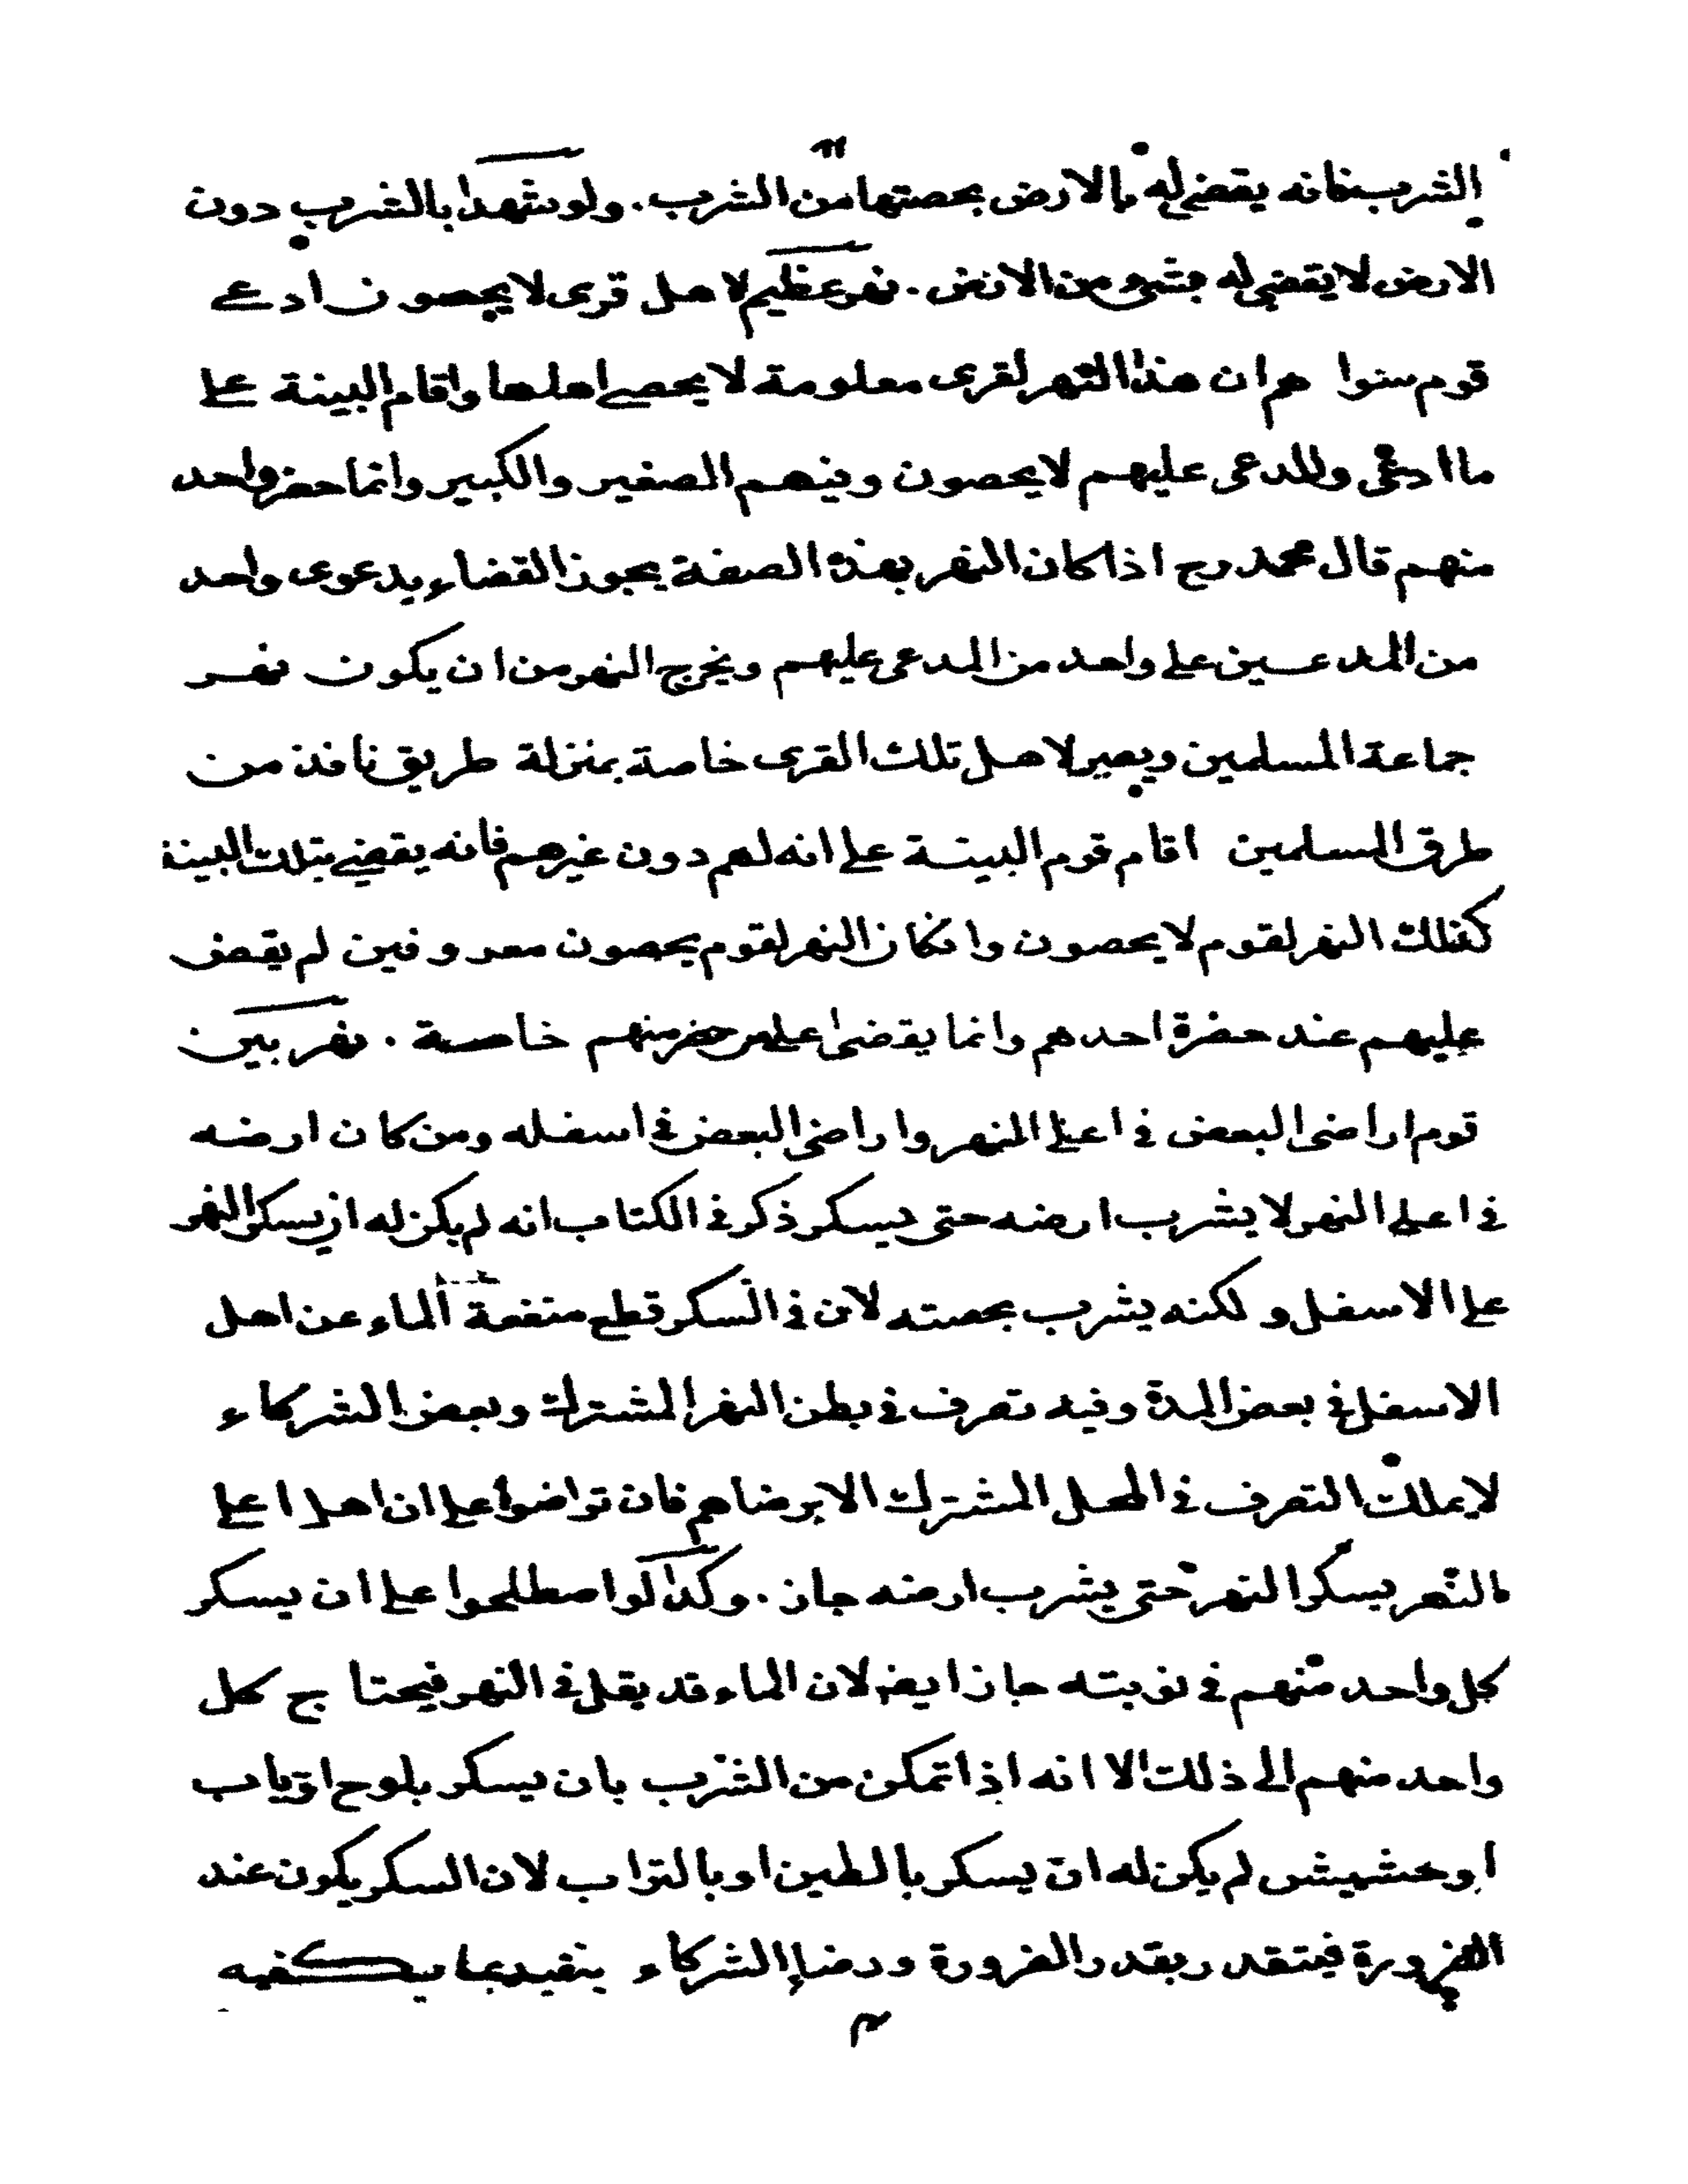 الشرب فانه يقضى له بالارض بحصتها من الشرب. ولو شهدا بالشرب دون
الارض لا يقضى له بشئ من الارض. نهر عظيم لاهل قرى لا يحصون ادعى
قوم سنوا هم ان هذا النهر لقرى معلومة لا يحصى اهلها واقام البينة على
ما ادعى والمدعى عليهم لا يحصون وفيهم الصغير والكبير وانما حضر واحد
منهم قال محمد رح اذا كان النهر بهذه الصفة يجوز القضاء بدعوى واحد
من المدعين على واحد من المدعى عليهم ويخرج النهر من ان يكون نهر
جماعة المسلمين ويصير لاهل تلك القرى خاصة بمنزلة طريق نافذ من
طرق المسلمين اقام قوم البينة على انه لهم دون غيرهم فانه يقضى بتلك البينة
كذلك النهر لقوم لا يحصون وان كان النهر لقوم يحصون معروفين لم يقض
عليهم عند حضرة احدهم وانما يقضى على من حضر منهم خاصة. نهر بين
قوم اراضى البعض فى اعلى النهر واراضى البعض فى اسفله ومن كان ارضه
فى اعلى النهر لا يشرب ارضه حتى يسكر ذكر فى الكتاب انه لم يكن له ان يسكر النهر
على الاسفل ولكنه يشرب بحصته لان فى السكر قطع منفعة الماء عن اهل
الاسفل فى بعض المدة وفيه تصرف فى بطن النهر المشترك وبعض الشركاء
لا يملك التصرف فى المحل المشترك الا برضاهم فان تراضوا على ان اهل اعلى
النهر يسكر النهر حتى يشرب ارضه جاز. وكذا لو اصطلحوا على ان يسكر
كل واحد منهم فى نوبته جاز ايضا لان الماء قد يقل فى النهر فيحتاج كل
واحد منهم الى ذلك الا انه اذا تمكن من الشرب بان يسكر بلوح او باب
او حشيش لم يكن له ان يسكر بالطين او بالتراب لان السكر يكون عند
الضرورة فيتقدر بقدر الضرورة ورضا الشركاء يتقيد بما يكفيه